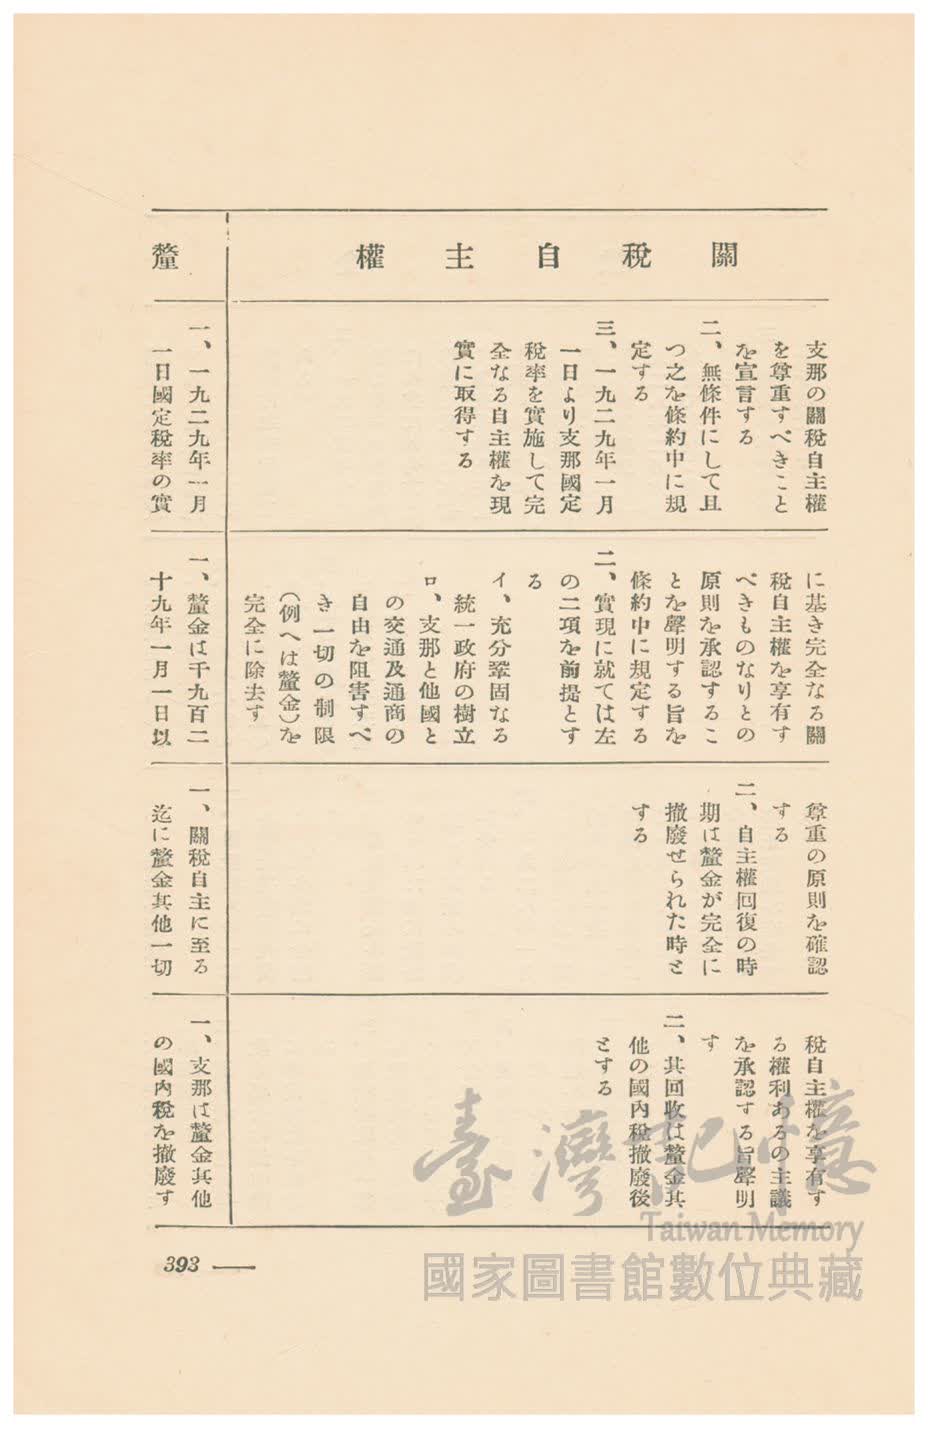 關稅自主權
支那の關稅自主權
を尊重すべきこと
を宣言する
二、無條件にして且
つ之を條約中に規
定する
三、一九二九年一月
一日より支那國定
稅率を實施して完
全なる自主權を現
實に取得する
に基き完全なる關
稅自主權を享有す
べきものなりとの
原則を承認するこ
とを聲明する旨を
條約中に規定する
二、實現に就ては左
の二項を前提とす
る
イ、充分鞏固なる
統一政府の樹立
ロ、支那と他國と
の交通及通商の
自由を阻害すべ
き一切の制限
（例へは釐金）を
完全に除去す
尊重の原則を確認
する
二、自主權回復の時
期は釐金が完全に
撤廢せられた時と
する
稅自主權を享有す
る權利あるの主議
を承認する旨聲明
す
二、其回收は釐金其
他の國內稅撤廢後
とする
釐
一、一九二九年一月
一日國定稅率の實
一、釐金は千九百二
十九年一月一日以
一、關稅自主に至る
迄に釐金其他一切
一、支那は釐金其他
の國內稅を撤廢す
393
臺灣記憶
Taiwan Memory
國家圖書館數位典藏